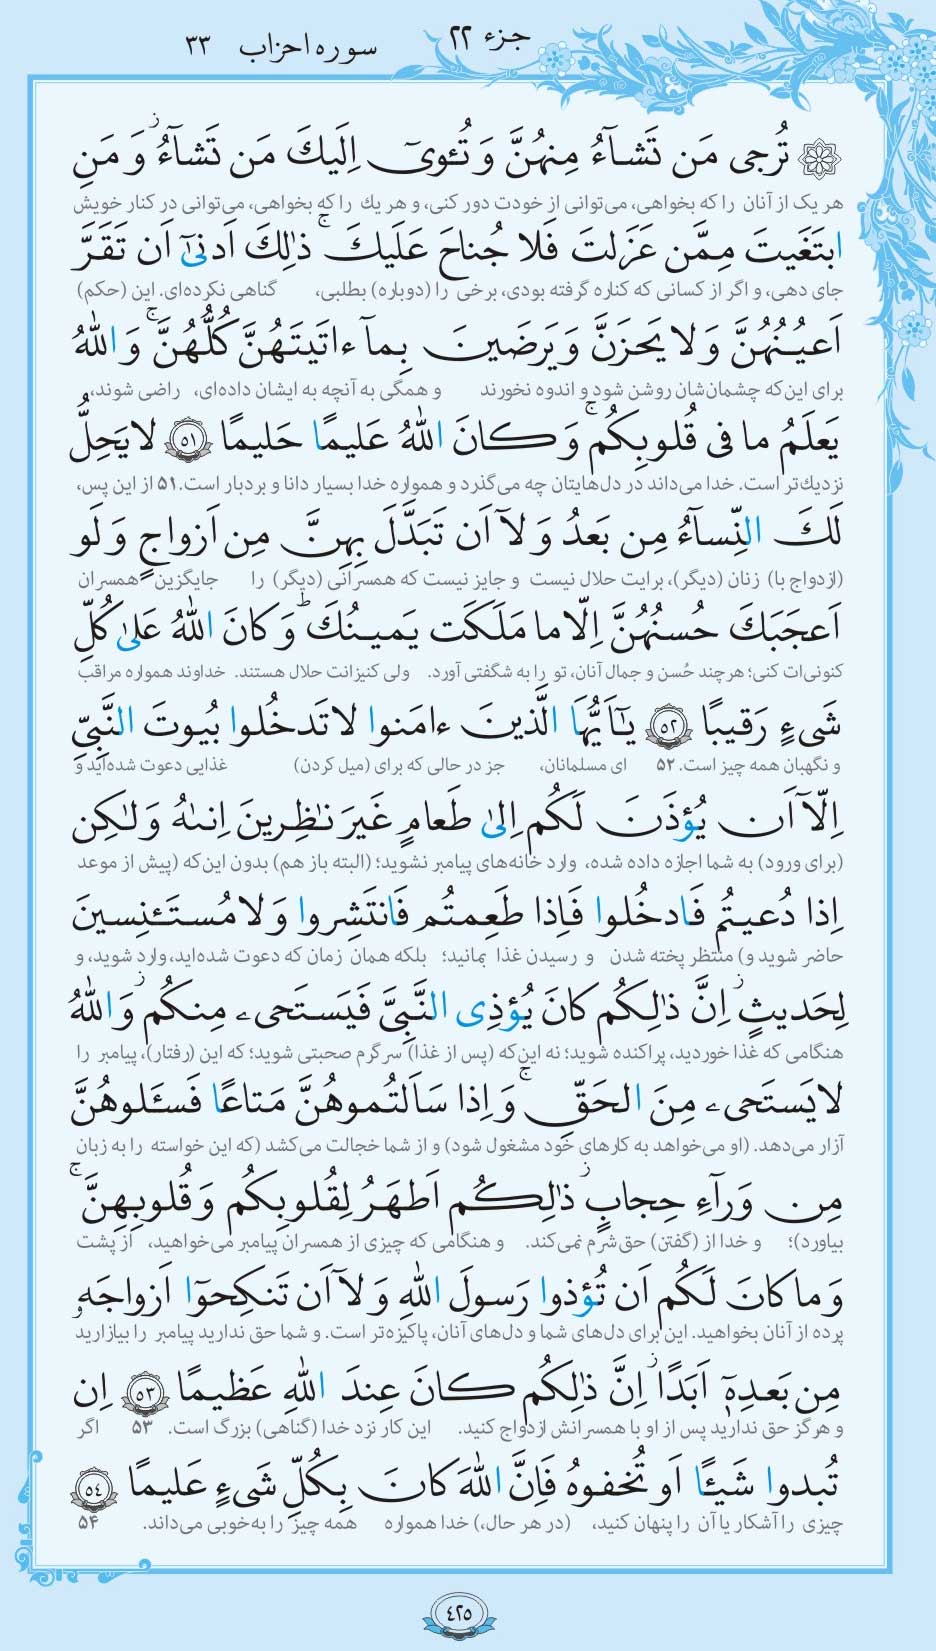 جزء ۲۲ سوره احزاب ۳۳
۞ تُرجی مَن تَشآءُ مِنهُنَّ وَ تُـٔویٓ اِلَیكَ مَن تَشآءُ ۖ وَ مَنِ
هر یک از آنان را که بخواهی، می‌توانی از خودت دور کنی، و هر یك را که بخواهی، می‌توانی در کنار خویش
ابتَغَیتَ مِمَّن عَزَلتَ فَلا جُناحَ عَلَیكَ ۚ ذٰلِكَ اَدنیٰٓ اَن تَقَرَّ
جای دهی، و اگر از کسانی که کناره گرفته بودی، برخی را (دوباره) بطلبی، گناهی نکرده‌ای. این (حکم)
اَعیُنُهُنَّ وَ لا یَحزَنَّ وَ یَرضَینَ بِمآ ءاتَیتَهُنَّ کُلُّهُنَّ ۚ وَ اللهُ
برای این‌که چشمان‌شان روشن شود و اندوه نخورند و همگی به آنچه به ایشان داده‌ای، راضی شوند،
یَعلَمُ ما فی قُلوبِکُم ۚ وَ کانَ اللهُ عَلیمًا حَلیمًا ﴿۵۱﴾ لا یَحِلُّ
نزدیك‌تر است. خدا می‌داند در دل‌هایتان چه می‌گذرد و همواره خدا بسیار دانا و بردبار است. ۵۱ از این پس،
لَكَ النِّسآءُ مِن بَعدُ وَ لآ اَن تَبَدَّلَ بِهِنَّ مِن اَزواجٍ وَ لَو
(ازدواج با) زنان (دیگر)، برایت حلال نیست و جایز نیست که همسرانی (دیگر) را جایگزین همسران
اَعجَبَكَ حُسنُهُنَّ اِلّا ما مَلَکَت یَمینُكَ ۗ وَ کانَ اللهُ عَلیٰ کُلِّ
کنونی‌ات کنی؛ هر چند حُسن و جمال آنان، تو را به شگفتی آورد. ولی کنیزانت حلال هستند. خداوند همواره مراقب
شَیءٍ رَقیبًا ﴿۵۲﴾ یٰٓاَیُّهَا الَّذینَ ءامَنوا لا تَدخُلوا بُیوتَ النَّبِیِّ
و نگهبان همه چیز است. ۵۲ ای مسلمانان، جز در حالی که برای (میل کردن) غذایی دعوت شده‌اید و
اِلّآ اَن یُؤذَنَ لَکُم اِلیٰ طَعامٍ غَیرَ نٰظِرینَ اِنىٰهُ وَ لٰکِن
(برای ورود) به شما اجازه داده شده، وارد خانه‌های پیامبر نشوید؛ (البته باز هم) بدون این‌که (پیش از موعد
اِذا دُعیتُم فَادخُلوا فَاِذا طَعِمتُم فَانتَشِروا وَ لا مُستَـٔنِسینَ
حاضر شوید و) منتظر پخته شدن و رسیدن غذا بمانید؛ بلکه همان زمان که دعوت شده‌اید، وارد شوید، و
لِحَدیثٍ ۚ اِنَّ ذٰلِکُم کانَ یُؤذِی النَّبِیَّ فَیَستَحیۦ مِنکُم ۖ وَ اللهُ
هنگامی که غذا خوردید، پراکنده شوید؛ نه این‌که (پس از غذا) سرگرم صحبتی شوید؛ که این (رفتار)، پیامبر را
لا یَستَحیۦ مِنَ الحَقِّ ۚ وَ اِذا سَاَلتُموهُنَّ مَتاعًا فَسـَٔلوهُنَّ
آزار می‌دهد. (او می‌خواهد به کارهای خود مشغول شود) و از شما خجالت می‌کشد (که این خواسته را به زبان
مِن وَرآءِ حِجابٍ ۚ ذٰلِکُم اَطهَرُ لِقُلوبِکُم وَ قُلوبِهِنَّ ۚ
بیاورد)؛ و خدا از (گفتن) حق شرم نمی‌کند. و هنگامی که چیزی از همسران پیامبر می‌خواهید، از پشت
وَ ما کانَ لَکُم اَن تُؤذوا رَسولَ اللهِ وَ لآ اَن تَنکِحوٓا اَزواجَهٗ
پرده از آنان بخواهید. این برای دل‌های شما و دل‌های آنان، پاکیزه‌تر است. و شما حق ندارید پیامبر را بیازارید
مِن بَعدِهٖٓ اَبَدًا ۚ اِنَّ ذٰلِکُم کانَ عِندَ اللهِ عَظیمًا ﴿۵۳﴾ اِن
و هرگز حق ندارید پس از او با همسرانش ازدواج کنید. این کار نزد خدا (گناهی) بزرگ است. ۵۳ اگر
تُبدوا شَیـًٔا اَو تُخفوهُ فَاِنَّ اللهَ کانَ بِکُلِّ شَیءٍ عَلیمًا ﴿۵۴﴾
چیزی را آشکار یا آن را پنهان کنید، (در هر حال،) خدا همواره همه چیز را به‌خوبی می‌داند. ۵۴
۴۲۵